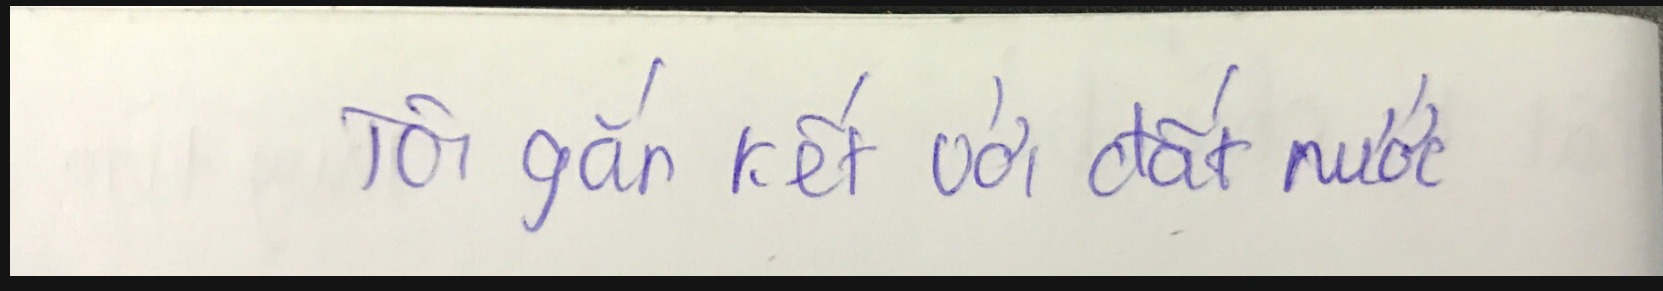 Tôi gắn kết với đất nước